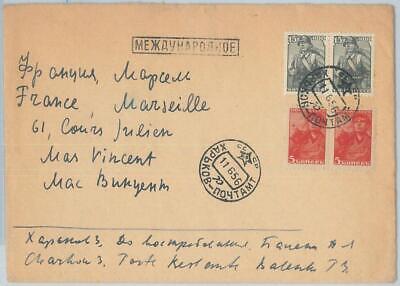 МЕЖДУНАРОДНОЕ
Франция, Марсель
France, Marseille
61, Cours Julien
Mas Vincent
Мас Винцент
ХАРЬКОВ-ПОЧТАМТ
СССР
11 6 56
5 КОПЕЕК
5 КОПЕЕК
Харьков 3, До востребования,
Charkow 3, Poste Restante